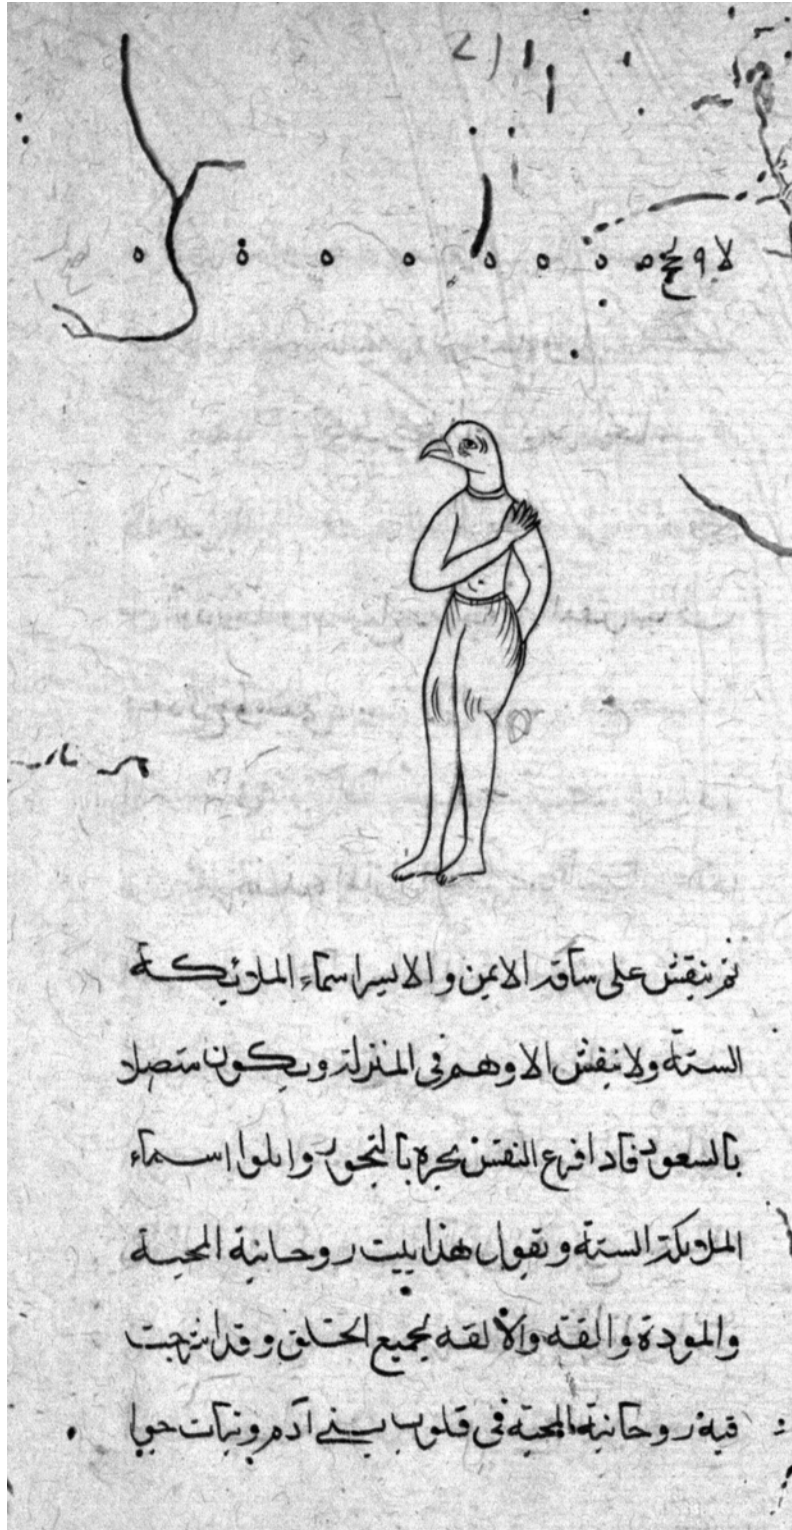 ثم ينقش على ساقه الايمن والايسر اسماء الملائكة
الستة ولا ينقش الا وهم في المنزلة ويكون متصلا
بالسعود فاذا افرغ النقش بخره بالبخور واتلوا اسماء
الملائكة الستة ويقول هذا بيت روحانية المحبة
والمودة والفة والألفه لجميع الخلق وقد امتزجت
فيه روحانية المحبة في قلوب بني آدم وبنات حوا